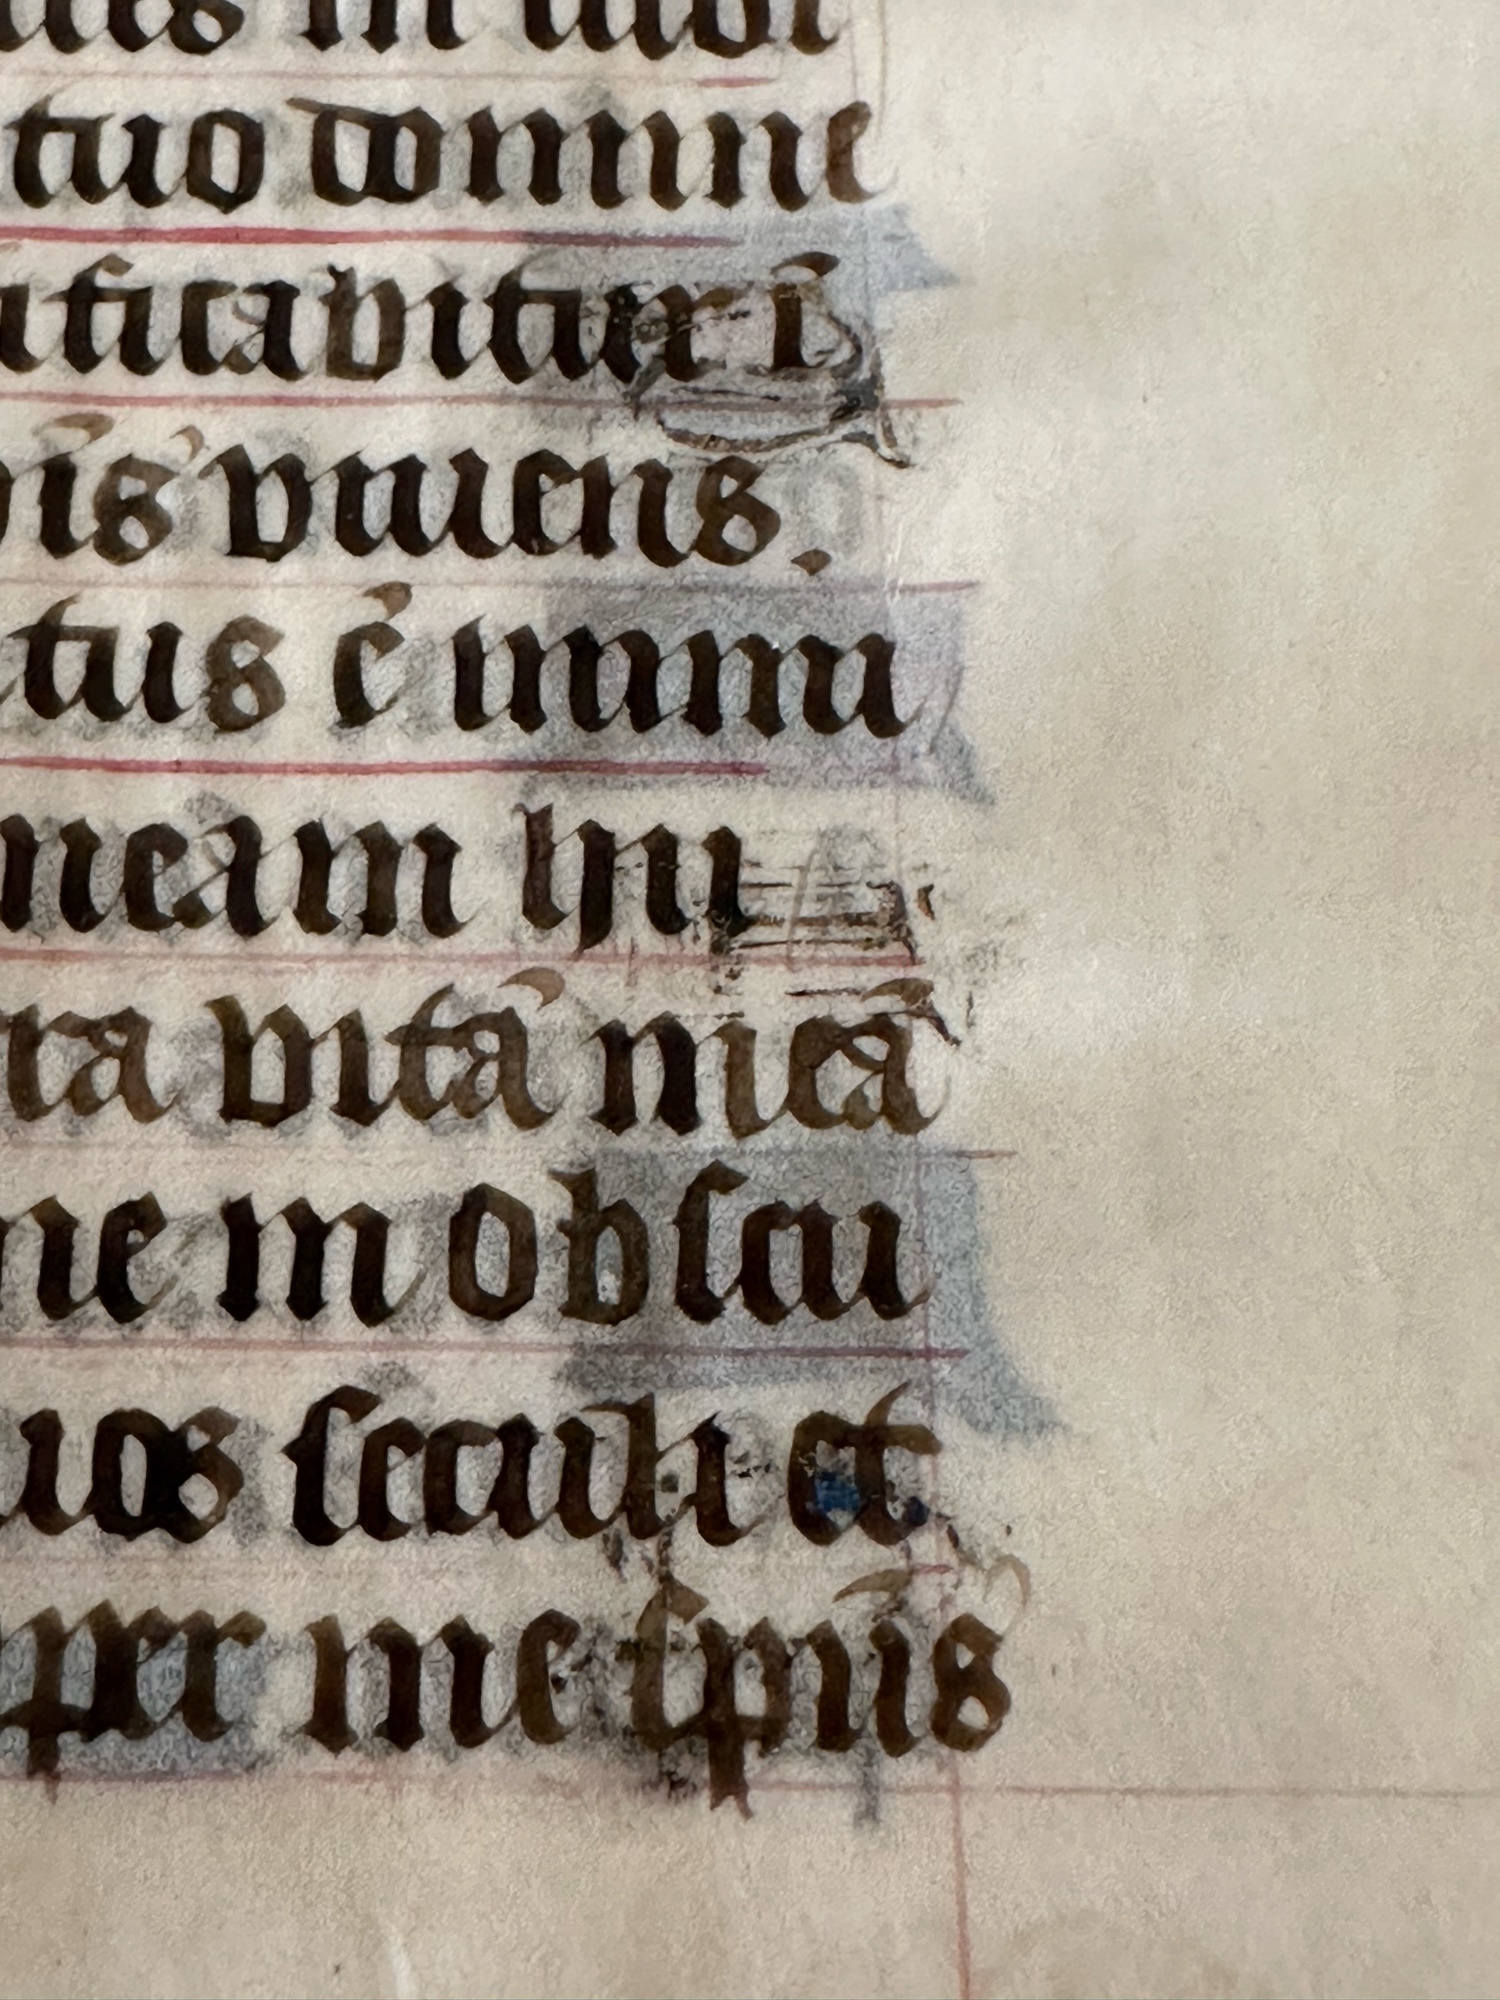 tes in iudi
tuo domine
tificabitur ī
is viuens.
tus ē inimi
meam hu
ra vitā meā
me in obscu
uos seculi et
per me spūs